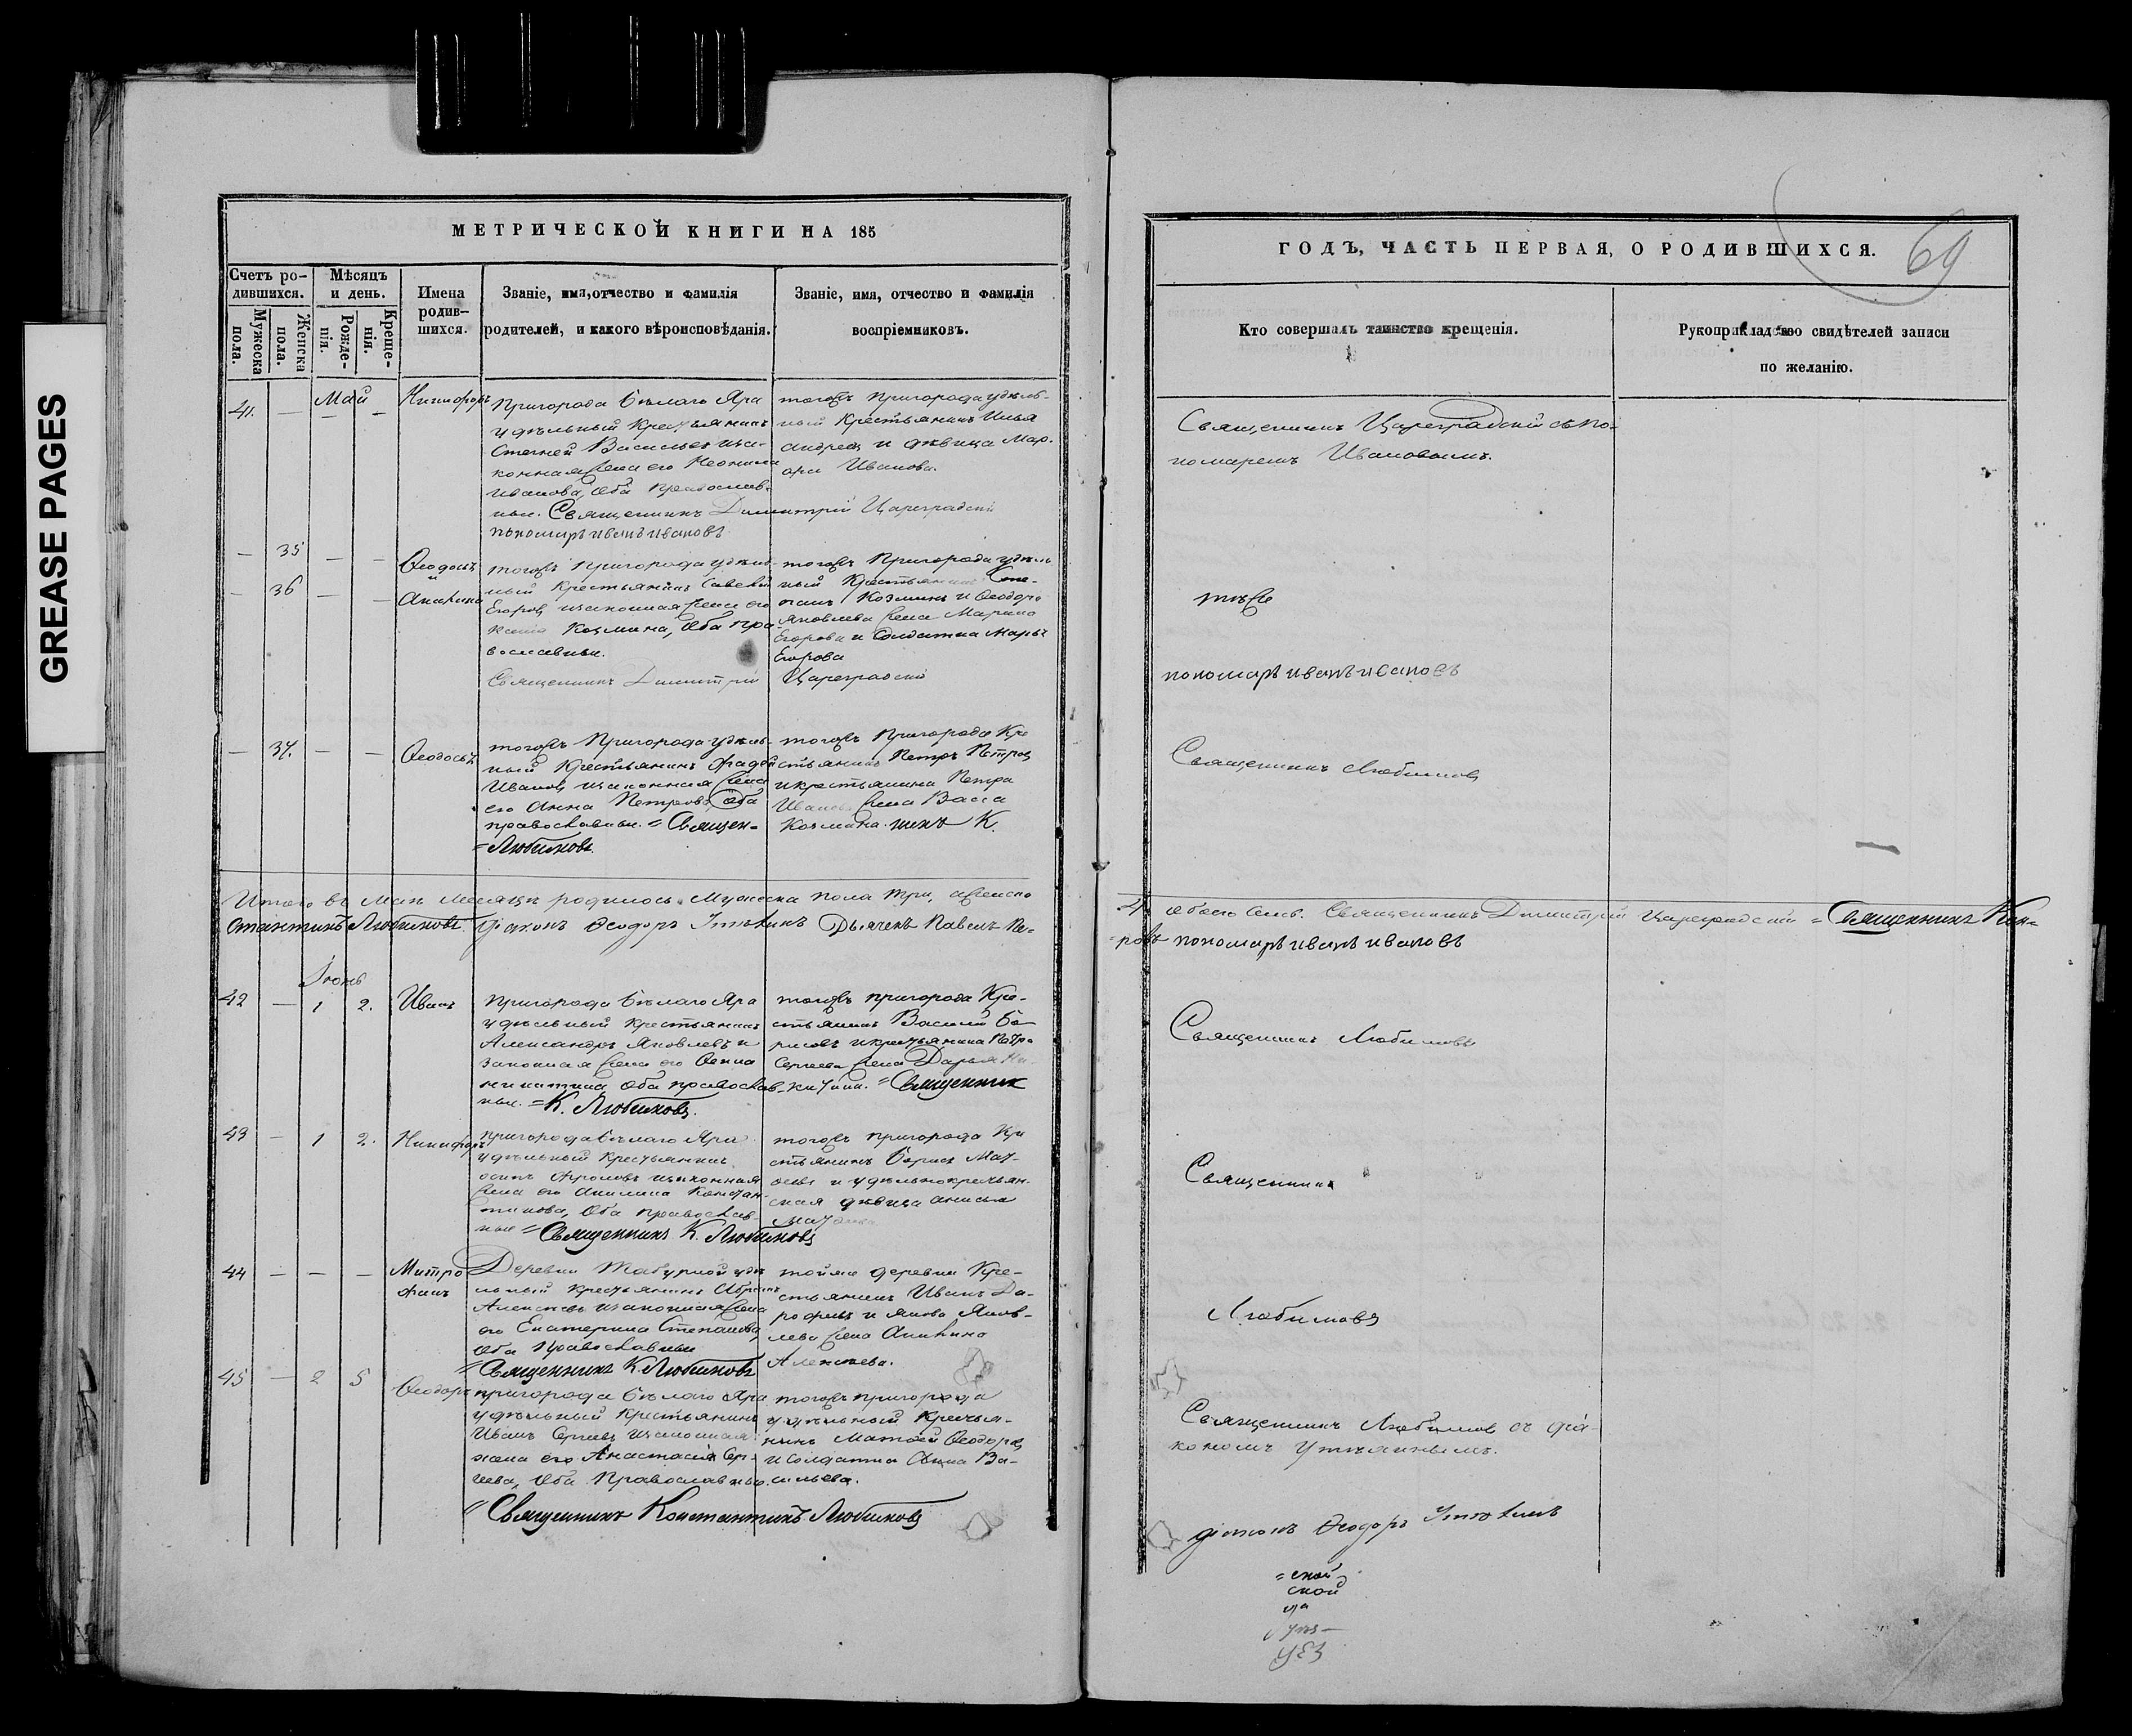 GREASE PAGES
МЕТРИЧЕСКОЙ КНИГИ НА 185
Счетъ ро-
дившихся.
Мужеска
пола.
Женска
пола.
Мѣсяцъ
и день.
Рожде-
нія.
Креще-
нія.
Имена
родив-
шихся.
Званіе, имя, отчество и фамилія
родителей, и какого вѣроисповѣданія.
Званіе, имя, отчество и фамилія
воспріемниковъ.
41. — Май — — Никифоръ
Пригорода Бѣлаго Яра
удѣльный крестьянинъ
Васильевъ и за-
конная жена его Неонила
Иванова, оба православ-
ные. Священникъ Димитрій Цареградскій
пономарь Иванъ Ивановъ
тогожъ пригорода удѣль-
ный крестьянинъ Илья
Андреевъ и дѣвица Мар-
Иванова.
— 35 — — Ѳеодосья
и
— 36 — — Акилина
тогожъ пригорода удѣль-
ный крестьянинъ Савелій
Егоровъ и законная жена его
Козмина, оба пра-
вославные.
Священникъ Димитрій Цареградскій
тогожъ пригорода удѣль
ный крестьянинъ Сте-
панъ Козминъ и Ѳеодора
Яковлева жена Марина
Егорова и солдатка Марья
Егорова
— 37. — — Ѳеодосья
тогожъ пригорода удѣль-
ный крестьянинъ Фадей
Ивановъ и законная жена
его Анна Петрова, оба
православные. = Священ-
= Любимовъ.
тогожъ пригорода кре
стьянинъ Петръ Петровъ
и крестьянина Петра
Иванова жена Васса
Козмина. никъ К.
Итого въ Маѣ месяцѣ родилось мужеска пола три, а женска
стантинъ Любимовъ. діаконъ Ѳеодоръ Утѣхинъ Дьячекъ Павелъ Пе-
Іюнь
42 — 1 2. Иванъ
Пригорода Бѣлаго Яра
удѣльный крестьянинъ
Александръ Яковлевъ и
законная жена его
Никитина, оба православ-
ные. = К. Любимовъ.
тогожъ пригорода кре-
стьянинъ Василій Бо-
рисовъ и крестьянина Петра
Сергеева жена Дарья Ни-
китина. = Священник
43 — 1 2. Никифоръ
Пригорода Бѣлаго Яра
удѣльный крестьянинъ
Осипъ Фроловъ и законная
жена его Акилина Констан-
тинова, оба православ-
ные = Священникъ К. Любимовъ
тогожъ пригорода кре
стьянинъ Борисъ Мат-
вѣевъ и удѣльнокрестьян-
ская дѣвица Анисья
44 — — — Митро
фанъ
Деревни удѣ
льный крестьянинъ
Алексѣевъ и законная жена
его Екатерина Степанова,
оба православные
= Священникъ К. Любимовъ
тойже деревни кре-
стьянинъ Иванъ До-
рофеевъ и Якова Яков-
лева жена Акилина
Алексѣева.
45 — 2 5 Ѳеодоръ
Пригорода Бѣлаго Яра
удѣльный крестьянинъ
Иванъ Сергеевъ и законная
жена его Анастасія Сер-
геева, оба православные.
= Священникъ Константинъ Любимовъ
тогожъ пригорода
удѣльный крестья-
нинъ Матѳей Ѳеодоровъ
и солдатка Анна Ва-
сильева.
ГОДЪ, ЧАСТЬ ПЕРВАЯ, О РОДИВШИХСЯ.
69
Кто совершалъ таинство крещенія.
Рукоприкладство свидѣтелей записи
по желанію.
Священникъ Цареградскій съ по-
номаремъ Ивановымъ.
тѣже
пономарь Иванъ Ивановъ
Священникъ Любимовъ
4, обоего семь. Священникъ Димитрій Цареградскій = Священникъ Кон-
=ровъ пономарь Иванъ Ивановъ
Священникъ Любимовъ
Священникъ
Любимовъ
Священникъ Любимов съ діа-
кономъ Утѣхинымъ.
діаконъ Ѳеодоръ Утѣхинъ
= ской
ской